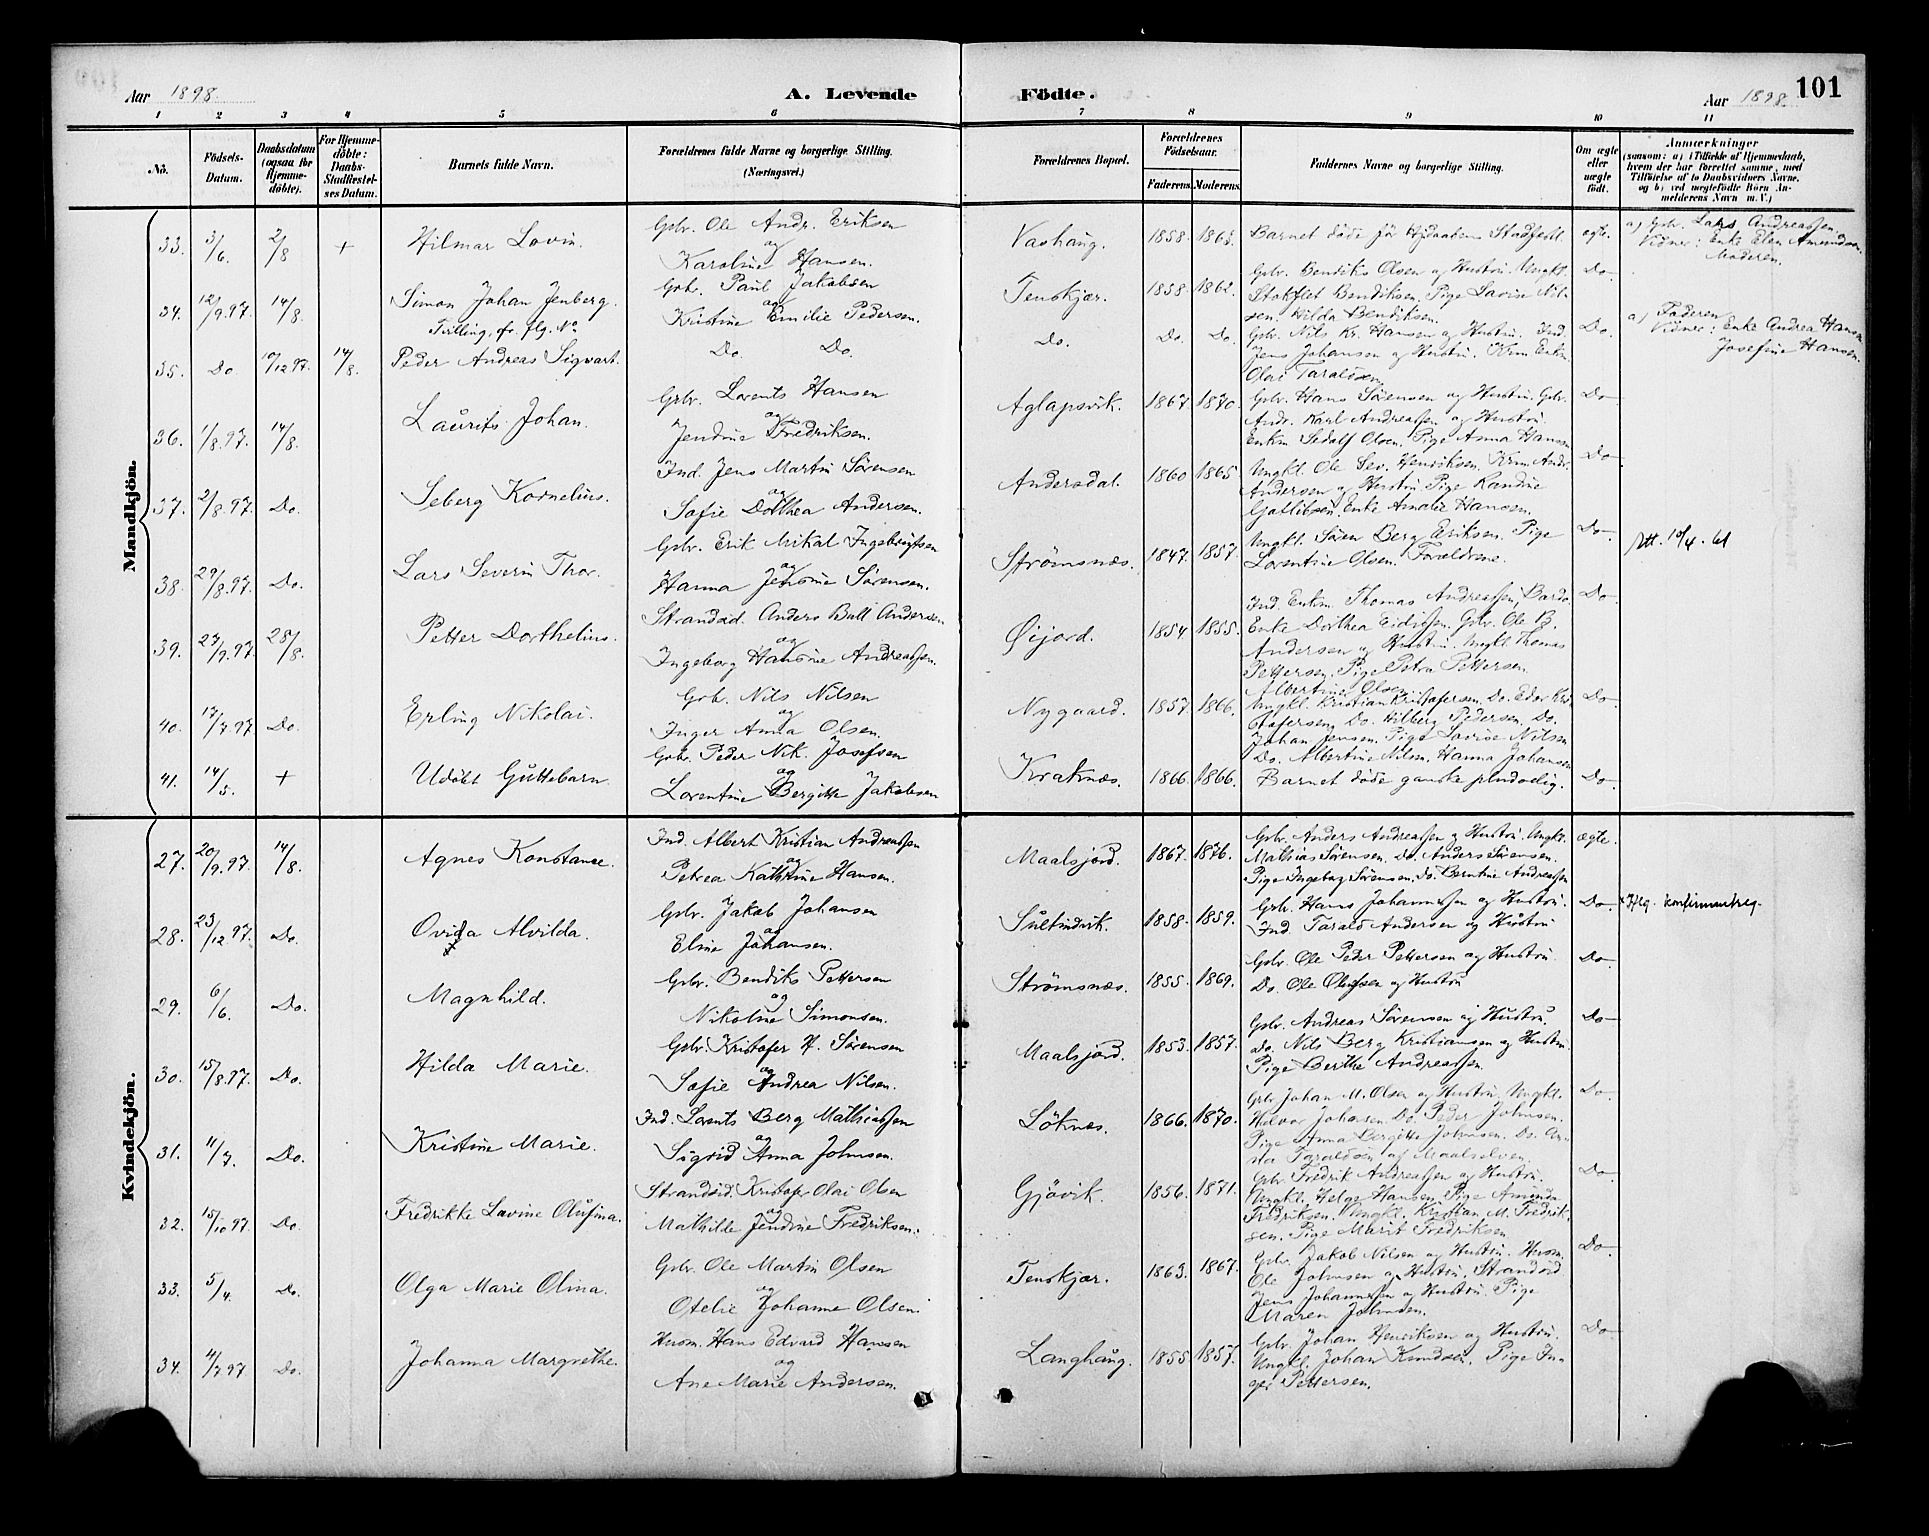 Aar 1898. A. Levende Födte. Aar 1898. 101
1 2 3 4 5 6 7 8 9 10 11
No. Födsels-Datum. Daabsdatum (ogsaa for Hjemme-döbte). For Hjemme-döbte: Daabs-Stadfæstel-ses Datum. Barnets fulde Navn. Forældrenes fulde Navne og borgerlige Stilling. (Næringsvei.) Forældrenes Bopæl. Forældrenes Födselsaar. Faderens. Moderens. Faddernes Navne og borgerlige Stilling. Om ægte eller uægte födt. Anmærkninger (saasom: a) i Tilfælde af Hjemmedaab, hvem der har forrettet samme, med Tilföielse af to Daabsvidners Navne, og b) ved uægtefödte Börn Anmelderens Navn m. V.)
Mandkjön.
33. 3/6. 2/8 + Hilmar Lovin. Gbr. Ole Andr. Eriksen
og
Karoline Hansen. 1858. 1865. Barnet döde för Hjdaabens Stadfest. ægte. a) Gbr. Lars Andreassen.
Vidner: Enke Elen Amundsen.
Moderen.
34. 12/9.97. 14/8. Simon Johan Jenberg.
Tvilling, fr. flg. No
Gbr. Paul Jakobsen
og
Kristine Emilie Pedersen. Tenskjær. 1858. 1862. Gbr. Bendiks Olsen og Hustru. Ungkl.
Stokflet Bendiksen. Pige Lavise Nil-
sen. Hilda Bendiksen. Do.
35. Do. 12.97. 14/8. Peder Andreas Sigvart. Do. Do. Do. Do. Do. Gbr. Nils Kr. Hansen og Hustru. Ind.
Jens Johansen og Hustru. Enkm.
Olai Taraldsen. Do. a) Faderen.
Vidner: Enke Andrea Hansen
Josefine Hansen.
36. 1/8.97. 14/8. Laurits Johan. Gbr. Lorents Hansen
og
Jendine Fredriksen. Aglapsvik. 1867. 1870. Gbr. Hans Sörensen og Hustru. Gbr.
Andr. Karl Andreassen og Hustru.
Enkm Olsen. Pige Anna Hansen Do.
37. 2/8.97. Do. Seberg Kornelius. Ind. Jens Martin Sörensen
og
Sofie Dorthea Andersen. Andersdal. 1860 1865 Ungkl. Ole Sev. Henriksen. Andr.
Andersen og Hustru. Pige
Gotlibsen. Enke Amalie Hansen. Do.
38. 29/8.97. Do. Lars Severin Thor. Gbr. Erik Mikal Ingebrigtsen
og
Hanna Jensine Sörensen. Strömsnæs. 1847. 1857. Ungkl. Sören Berg Eriksen. Pige
Lorentine Olsen. Forældrene. Do. Att. 10/4. 61
39. 27/9.97. 28/8. Petter Dorthelius. Strandsid. Anders Ball Andersen
og
Ingeborg Hansine Andreassen. Øijord. 1854. 1855. Ind. Enkm. Thomas Andreassen, Bardo.
Enke Dorthea Eidissen. Gbr. Ole B.
Andersen og Hustru. Ungkl Thomas
Pettersen. Pige Petra Pettersen.
Albertine Olsen. Do.
40. 17/7.97. Do. Erling Nikolai. Gbr. Nils Nilsen
og
Inger Anna Olsen. Nygaard. 1857. 1866. Ungkl. Kristian Kristofersen. Do. Edor Kri-
stofersen. Do. Hilberg Pedersen. Do.
Johan Jensen. Pige Lovise Nilsen
Do. Albertine Nilsen. Hanna Johansen Do.
41. 14/5. + Udöbt Guttebarn. Gbr. Peder Nik. Josefsen
og
Lorentine Bergitte Jakobsen Kraknæs. 1866. 1866. Barnet döde ganske pludselig. Do.
Kvindekjön.
27. 20/9.97. 14/8. Agnes Konstance. Ind. Albert Kristian Andreassen
og
Petrea Kathrine Hansen. Maalsjord. 1867. 1876. Gbr. Anders Andreassen og Hustru. Ungkl.
Mathias Sörensen. Do. Anders Sörensen.
Pige Ingeborg Sörensen. do. Berntine Andreassen ægte.
28. 23/12.97. Do. Ovida Alvilda. Gbr. Jakob Johansen
og
Eline Johansen. Sultindvik. 1858. 1859. Gbr. Hans Johannessen og Hustru.
Ind. Tarald Andersen og Hustru Do. konfirmantreg.
29. 6/6. Do. Magnhild. Gbr. Bendiks Pettersen
og
Nikoline Simonsen. Strömsnæs. 1855. 1869. Gbr. Ole Peder Pettersen og Hustru.
Do. Ole Olufsen og Hustru Do.
30. 15/8.97. Do. Hilda Marie. Gbr. Kristofer H. Sörensen
og
Sofie Andrea Nilsen. Maalsjord. 1853. 1857. Gbr. Andreas Sörensen og Hustru.
Do. Nils Berg Kristiansen og Hustru.
Pige Berthe Andreassen. Do.
31. 11/7. Do. Kristine Marie. Ind. Lorents Berg Mathiassen
og
Sigrid Anna Johnsen. Löknes. 1866. 1870. Gbr Johan M. Olsen og Hustru. Ungkl.
Halvor Johansen. Do. Peder Johnsen.
Pige Anna Bergitte Johnsen. Do.
Taraldsen af Maalselven. Do.
32. 15/10.97. Do. Fredrikke Lavine Olufina. Strandsid. Kristofer Olai Olsen
og
Mathilde Jendine Fredriksen. Gjövik. 1856. 1871. Gbr Fredrik Andreassen og Hustru.
Ungkl. Helge Hansen. Pige Amanda
Fredriksen. Ungkl. Kristian M. Fredrik-
sen. Pige Marit Fredriksen. Do.
33. 5/4. Do. Olga Marie Olina. Gbr. Ole Martin Olsen
og
Otelie Johanne Olsen. Tenskjær. 1863. 1867. Gbr. Jakob Nilsen og Hustru. Husm.
Ole Johnsen og Hustru. Strandsid
Jens Johannessen og Hustru. Pige
Maren Johnsen. Do.
34. 4/7.97 Do. Johanna Margrethe. Husm. Hans Edvard Hansen
og
Ane Marie Andersen. Langhaug. 1855. 1857. Gbr. Johan Henriksen og Hustru.
Ungkl. Johan Knudsen. Pige In-
ger Pettersen. Do.